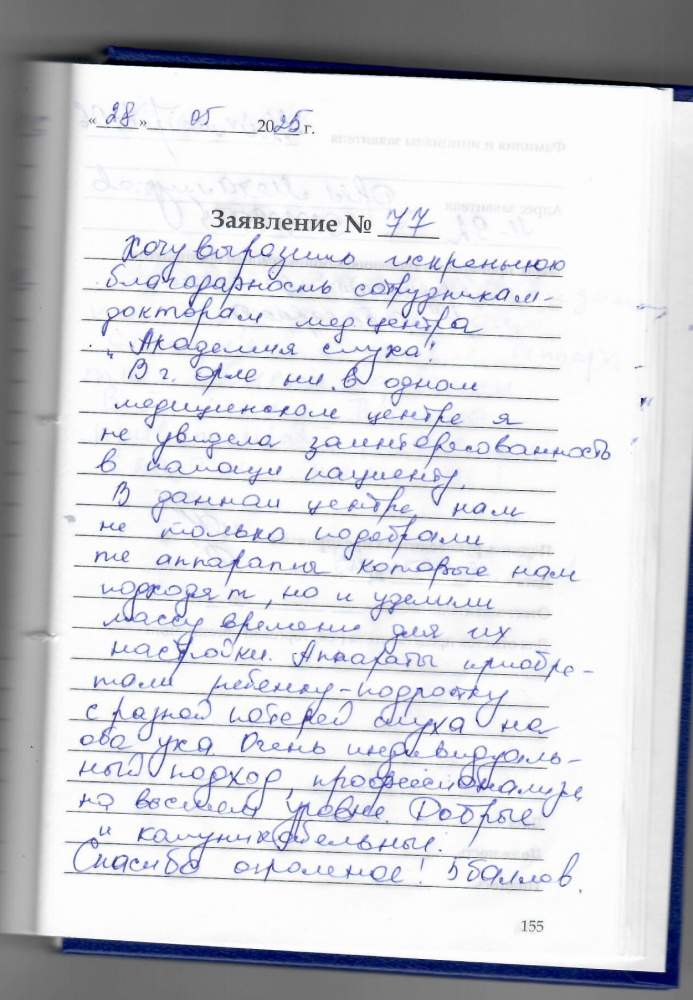 «28» 05 2025 г.
Заявление № 77
Хочу выразить искреннюю
благодарность сотрудникам-
докторам медцентра
"Академия слуха".
В г. Орле ни в одном
медицинском центре я
не увидела заинтересованность
в помощи пациенту.
В данном центре нам
не только подобрали
те аппараты которые нам
подходят, но и уделили
массу времени для их
настройки. Аппараты приобре-
тали ребенку-подростку
с разной потерей слуха на
оба уха. Очень индивидуаль-
ный подход, профессионализм
на высшем уровне. Добрые
и комуникабельные.
Спасибо огромное! 5 баллов.
155